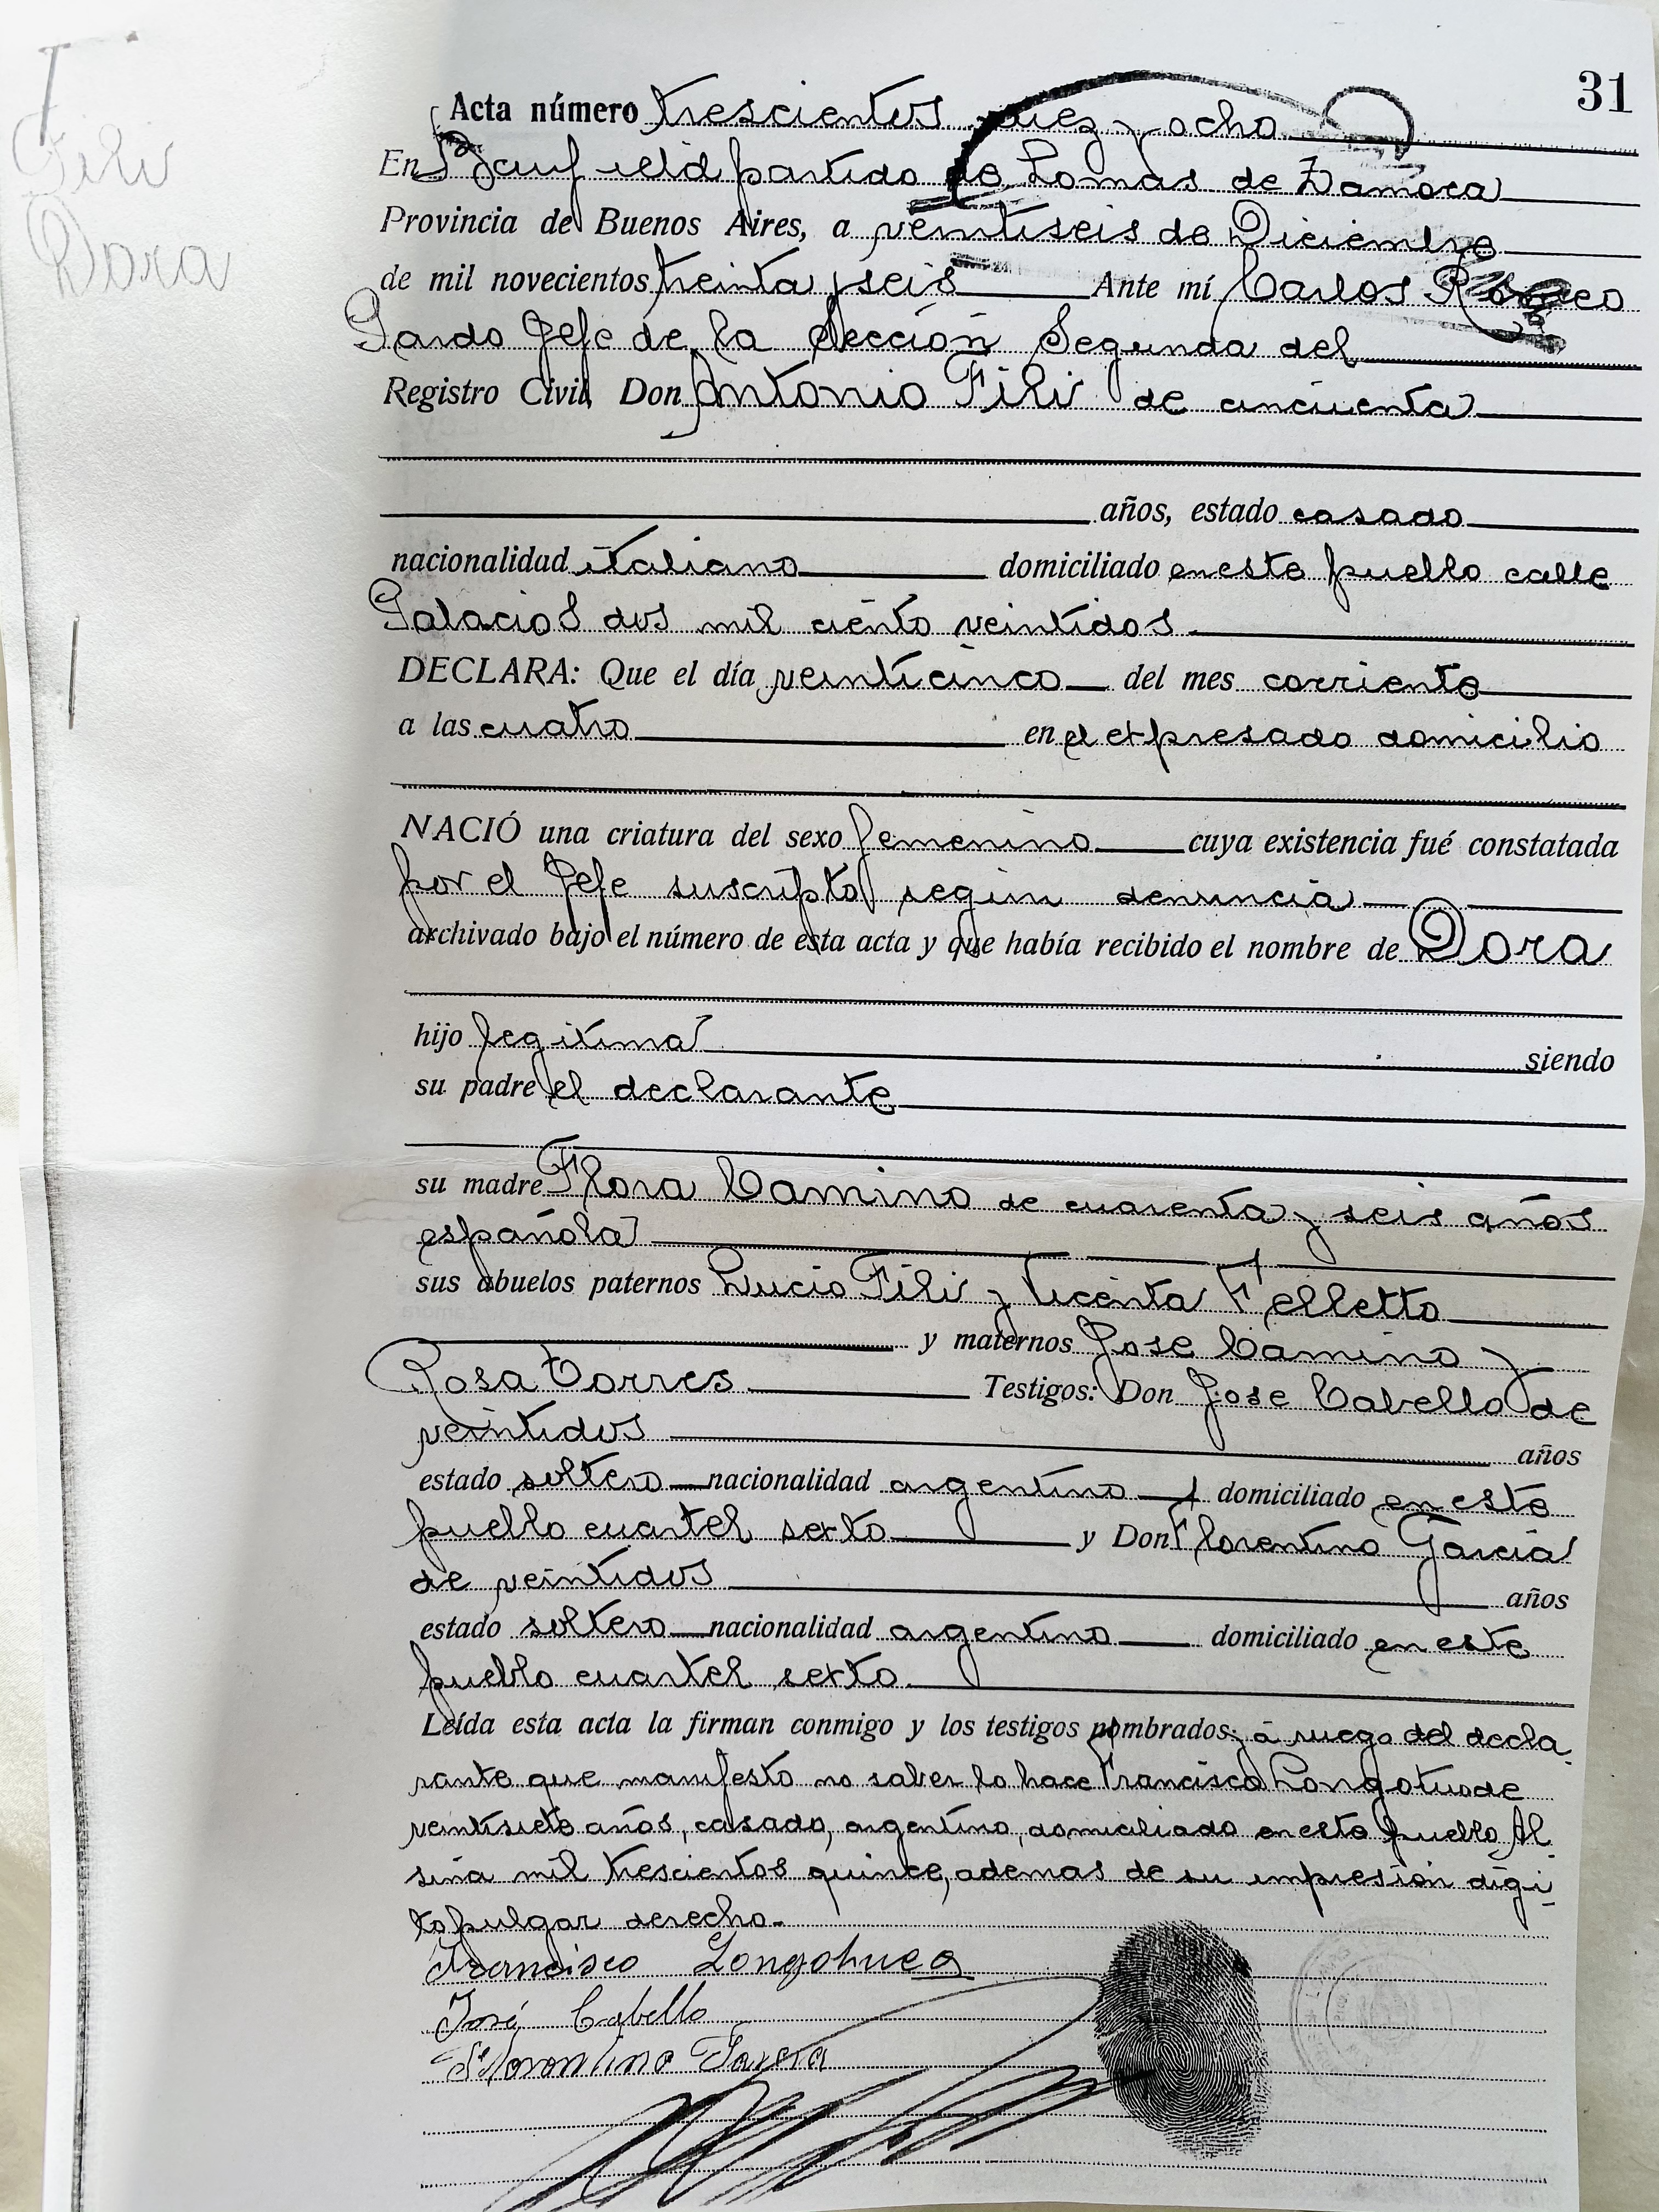 31
Fili
Dora
Acta número trescientos diez y ocho
En Banfield partido de Lomas de Zamora
Provincia de Buenos Aires, a veintiseis de Diciembre
de mil novecientos treinta y seis Ante mí Carlos
Pardo Jefe de la Sección Segunda del
Registro Civil, Don Antonio Fili de cincuenta
años, estado casado
nacionalidad italiano domiciliado en este pueblo calle
Palacios dos mil ciento veintidos.
DECLARA: Que el día veinticinco del mes corriente
a las cuatro en el expresado domicilio
NACIÓ una criatura del sexo femenino cuya existencia fué constatada
por el Jefe suscripto según denuncia
archivado bajo el número de esta acta y que había recibido el nombre de Dora
hijo legitima siendo
su padre el declarante
su madre Flora Camino de cuarenta y seis años
española
sus abuelos paternos Lucio Fili y Vicenta Felletto
y maternos Jose Camino y
Rosa Torres Testigos: Don Jose Cabello de
veintidos años
estado soltero nacionalidad argentino domiciliado en este
pueblo cuartel sexto y Don Florentino Garcia
de veintidos años
estado soltero nacionalidad argentino domiciliado en este
pueblo cuartel sexto.
Leída esta acta la firman conmigo y los testigos nombrados; y a ruego del decla
rante que manifesto no saber lo hace Francisco de
veintisiete años, casado, argentino, domiciliado en este pueblo Al
sina mil trescientos quince, ademas de su impresión digi
to pulgar derecho.
Francisco
José Cabello
Florentino Garcia